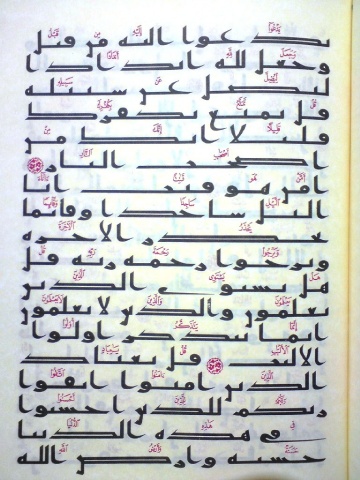 يدعوا اليه من قبل
وجعل لله اندادا
ليضل عن سبيله
قل تمتع بكفرك
قليلا انك من
اصحب النار
امن هو قنت انا
اليل ساجدا وقائما
يحذر الاخره
ويرجوا رحمه ربه قل
هل يستوى الذين
يعلمون والذين لا يعلمون
انما يتذكر اولوا
الالبب قل يعباد
الذين امنوا اتقوا
ربكم للذين احسنوا
فى هذه الدنيا
حسنه وارض الله